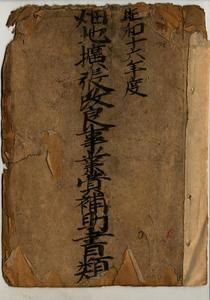 昭和十六年度
畑地擴張改良事業費補助書類